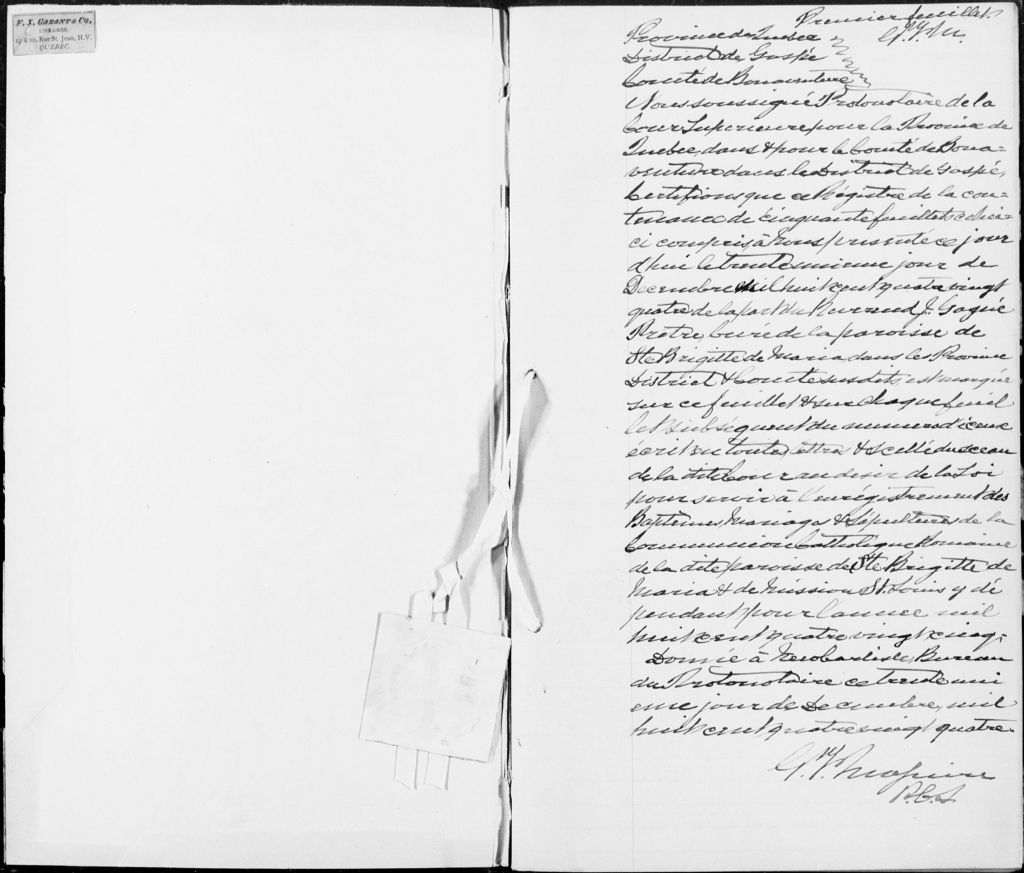 F. X. GARANT & CO.
LIBRAIRES,
Rue St. Jean, H.V.
QUEBEC.
Premier feuillet
Province de Quebec
District de Gaspé
Comté de Bonaventure
Nous soussigné Protonotaire de la
Cour Superieure pour la Province de
Quebec, dans & pour le Comté de Bona-
venture dans le District de Gaspé,
Certifions que ce Régistre de la con-
tenance de Cinquante feuillets celui-
ci compris à Nous présenté ce jour
d'hui le trente unieme jour de
Decembre Mil huit cent quatre vingt
quatre de la part du Reverend J. Gagné
Prêtre, Curé de la paroisse de
Ste Brigitte de Maria, dans les Province
District & Comté susdits, est marqué
sur ce feuillet & sur chaque feuil
let subséquent du numero d'iceux
écrit en toutes lettres & scellé du sceau
de la dite Cour au desir de la Loi
pour servir à l'enrégistrement des
Baptêmes, Mariages & Sépultures de la
Communion Catholique Romaine
de la dite paroisse de Ste Brigitte de
Maria & de Mission St. Louis y dé
pendant pour l'annee mil
huit cent quatre vingt cinq.
Donné à New Carlisle, Bureau
du Protonotaire ce trente uni
eme jour de Decembre, mil
huit cent quatre vingt quatre.
P.C.S